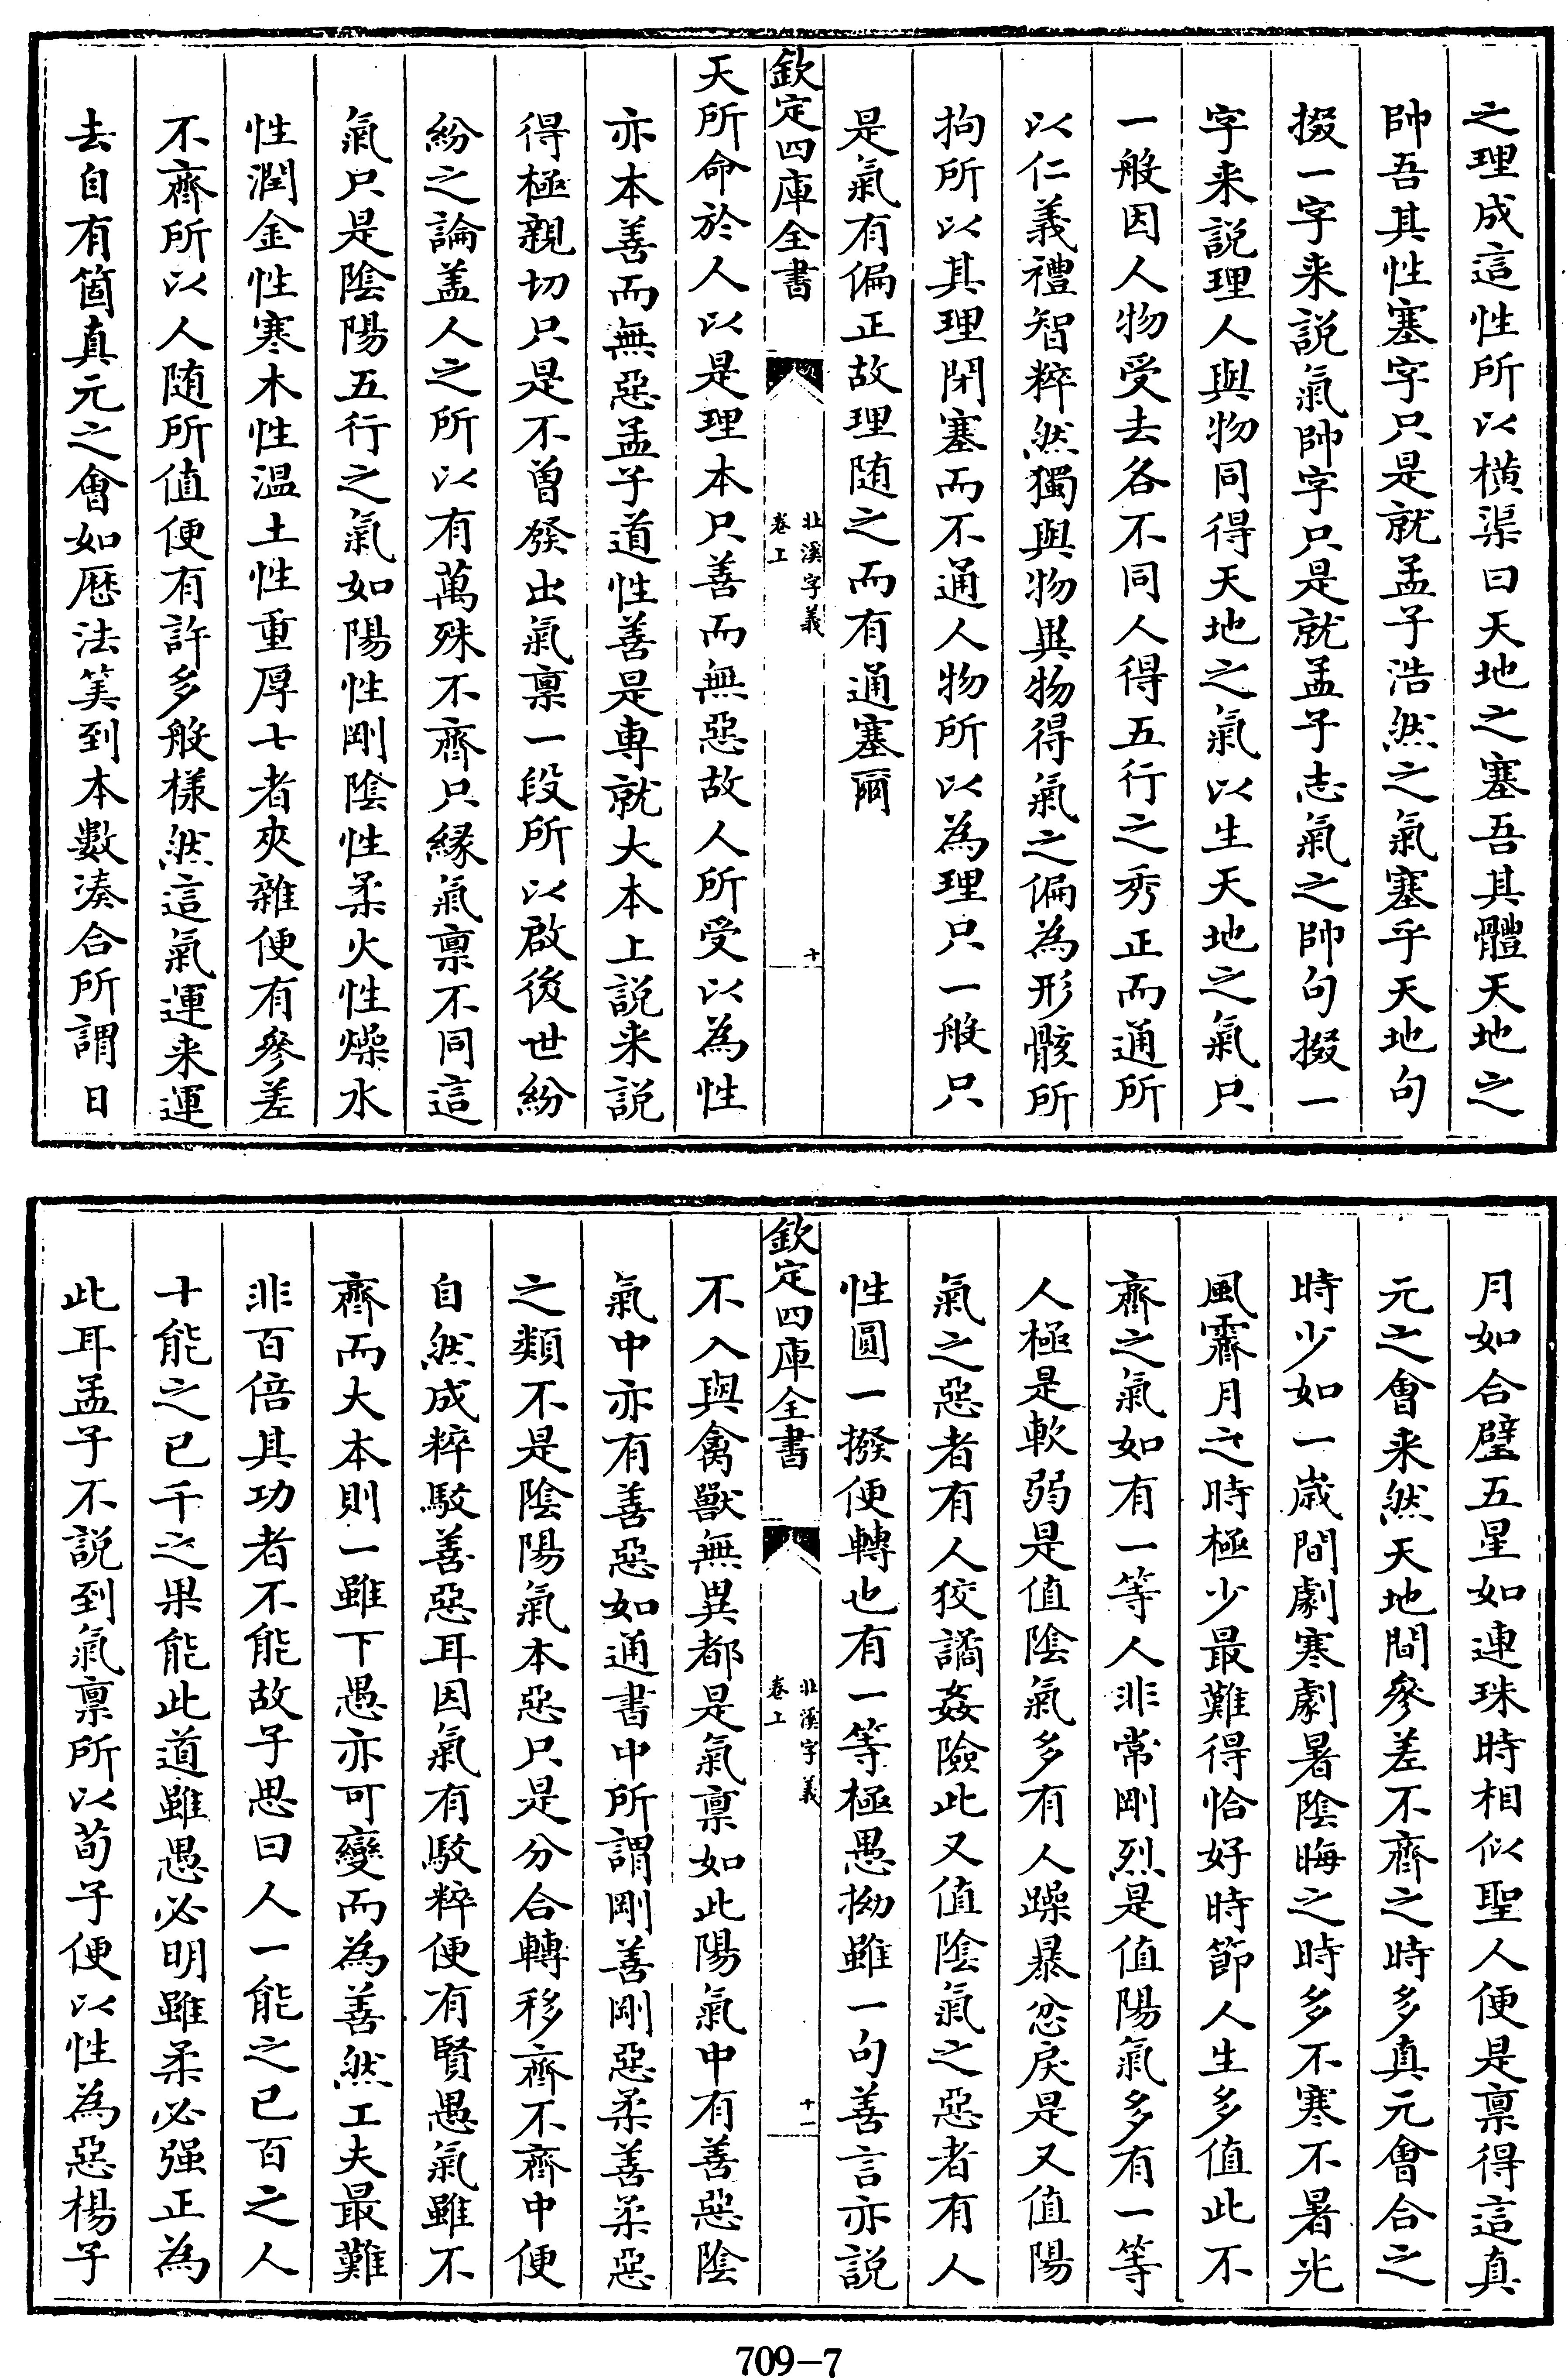 之理成這性所以横渠曰天地之塞吾其體天地之
帥吾其性塞字只是就孟子浩然之氣塞乎天地句
掇一字来説氣帥字只是就孟子志氣之帥句掇一
字来説理人與物同得天地之氣以生天地之氣只
一般因人物受去各不同人得五行之秀正而通所
以仁義禮智粹然獨與物異物得氣之偏為形骸所
拘所以其理閉塞而不通人物所以為理只一般只
是氣有偏正故理随之而有通塞爾
欽定四庫全書
北溪字義
卷上
十
天所命於人以是理本只善而無惡故人所受以為性
亦本善而無惡孟子道性善是専就大本上説来説
得極親切只是不曽發出氣禀一段所以啟後世紛
紛之論盖人之所以有萬殊不齊只縁氣禀不同這
氣只是隂陽五行之氣如陽性剛隂性柔火性燥水
性潤金性寒木性温土性重厚七者夾雜便有參差
不齊所以人随所值便有許多般様然這氣運来運
去自有箇真元之會如厯法筭到本數凑合所謂日
月如合璧五星如連珠時相似聖人便是禀得這真
元之會来然天地間參差不齊之時多真元會合之
時少如一嵗間劇寒劇暑隂晦之時多不寒不暑光
風霽月之時極少最難得恰好時節人生多值此不
齊之氣如有一等人非常剛烈是值陽氣多有一等
人極是軟弱是值隂氣多有人躁暴忿戾是又值陽
氣之惡者有人狡譎姦險此又值隂氣之惡者有人
性圓一撥便轉也有一等極愚拗雖一句善言亦説
欽定四庫全書
北溪字義
卷上
十一
不入與禽獸無異都是氣禀如此陽氣中有善惡隂
氣中亦有善惡如通書中所謂剛善剛惡柔善柔惡
之類不是隂陽氣本惡只是分合轉移齊不齊中便
自然成粹駁善惡耳因氣有駁粹便有賢愚氣雖不
齊而大本則一雖下愚亦可變而為善然工夫最難
非百倍其功者不能故子思曰人一能之已百之人
十能之已千之果能此道雖愚必明雖柔必强正為
此耳孟子不説到氣禀所以荀子便以性為惡楊子
709-7